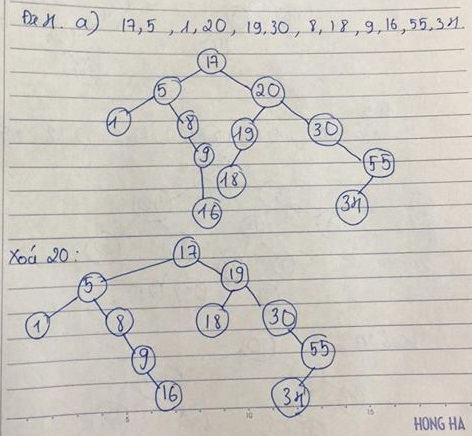 Bài 4. a) 17, 5, 1, 20, 19, 30, 8, 18, 9, 16, 55, 34.
17
5 20
1 8 19 30
9 18 55
16 34
Xoá 20:
17
5 19
1 8 18 30
9 55
16 34
5 10 15
HONG HA